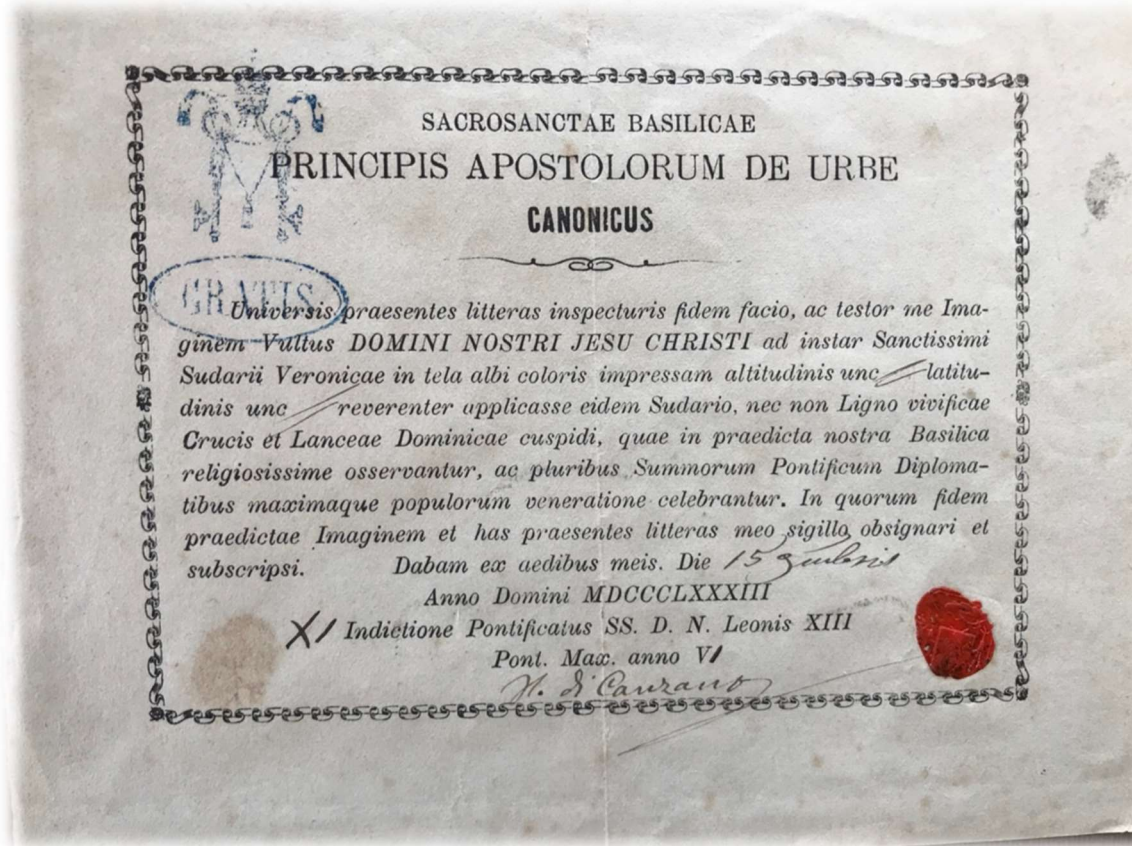 SACROSANCTAE BASILICAE
PRINCIPIS APOSTOLORUM DE URBE
CANONICUS
GRATIS
Universis praesentes litteras inspecturis fidem facio, ac testor me Ima-
ginem Vultus DOMINI NOSTRI JESU CHRISTI ad instar Sanctissimi
Sudarii Veronicae in tela albi coloris impressam altitudinis unc latitu-
dinis unc reverenter applicasse eidem Sudario, nec non Ligno vivificae
Crucis et Lanceae Dominicae cuspidi, quae in praedicta nostra Basilica
religiosissime osservantur, ac pluribus Summorum Pontificum Diploma-
tibus maximaque populorum veneratione celebrantur. In quorum fidem
praedictae Imaginem et has praesentes litteras meo sigillo obsignari et
subscripsi. Dabam ex aedibus meis. Die 15
Anno Domini MDCCCLXXXIII
XI Indictione Pontificatus SS. D. N. Leonis XIII
Pont. Max. anno VI
di Canzano